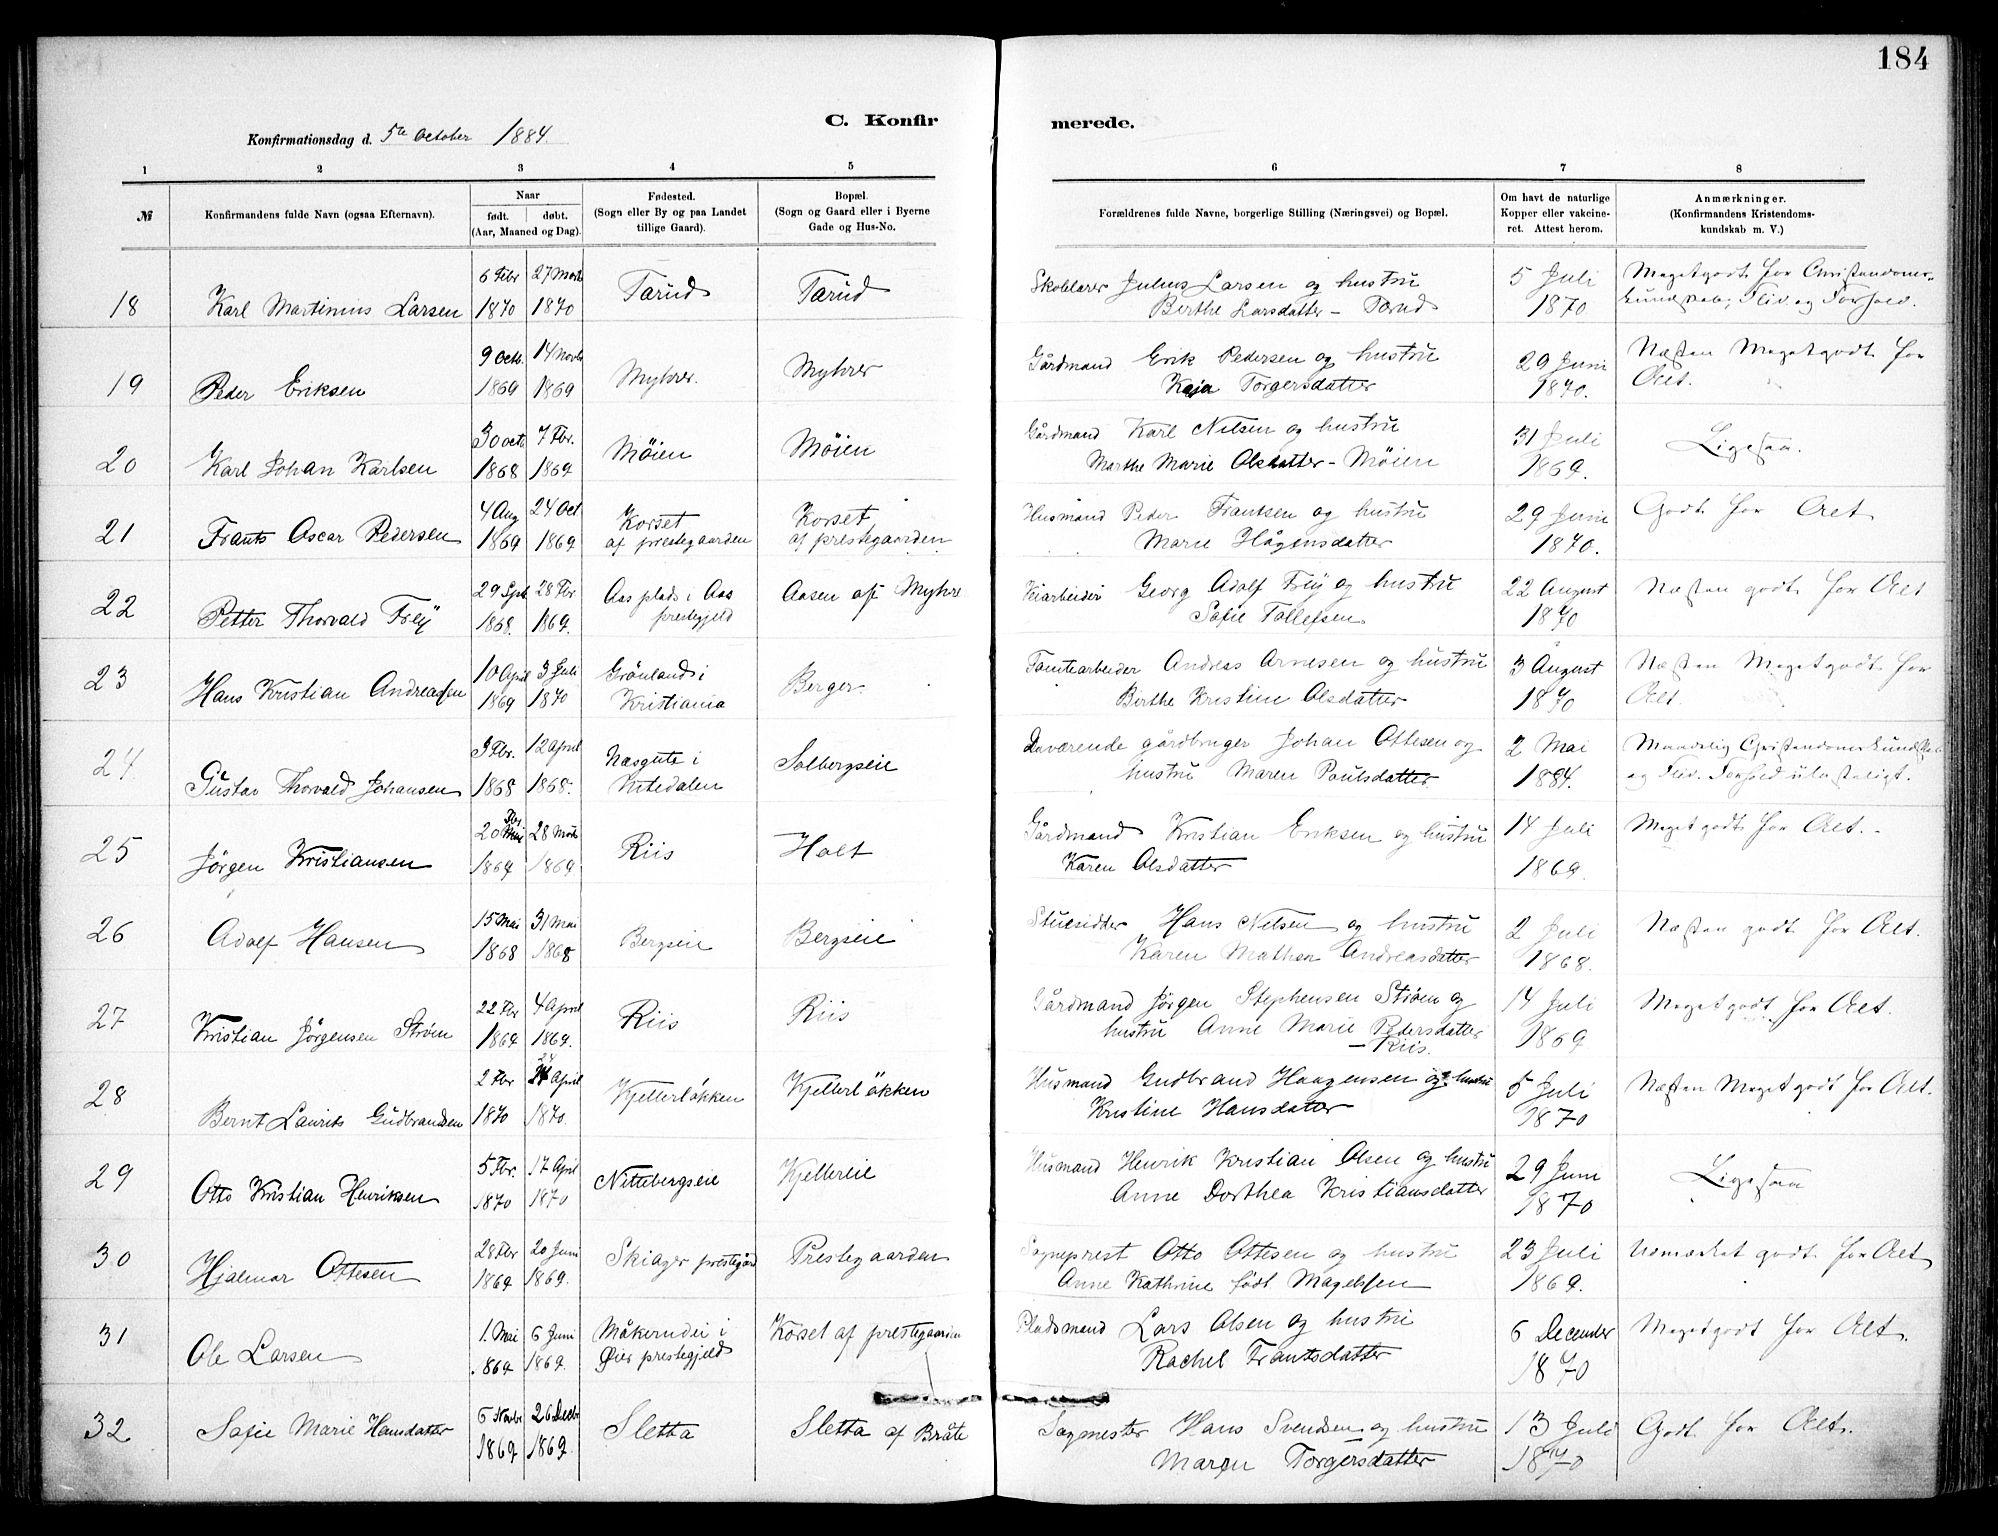 184
C. Konfir merede.
Konfirmationsdag d. 5te October 1884.
1 2 3 4 5 6 7 8
№ Konfirmandens fulde Navn (ogsaa Efternavn). Naar født. døbt. (Aar, Maaned og Dag). Fødested. (Sogn eller By og paa Landet tillige Gaard). Bopæl. (Sogn og Gaard eller i Byerne Gade og Hus-No. Forældrenes fulde Navne, borgerlige Stilling (Næringsvei) og Bopæl. Om havt de naturlige Kopper eller vakcineret. Attest herom. Anmærkninger. (Konfirmandens Kristendomskundskab m. V.)
6 Febr 27 Marts Tarud Tarud Skoblærer Julius Larsen og hustru 5 Juli Meget godt for Christendoms-
18 Karl Martinius Larsen 1870 1870 Birthe Larsdatter – Tarud 1870 kundskab, Flid og Forhold.
9 Octb. 14 Novbr Myhrer. Myhrer Gårdmand Erik Pedersen og hustru 29 Juni Næsten Meget godt for
19 Peder Eriksen 1869 1869 Kaja Torgersdatter 1870. Alt.
30 octb 7 Fbr. Møien Møien Gårdmand Karl Nilsen og hustru 31 Juli Ligesaa.
20 Karl Johan Karlsen 1868 1869 Marthe Marie Olsdatter – Møien 1869.
4 Aug 24 Oct Korset Korset Husmand Peder Frantsen og hustru 29 Juni Godt for Alt
21 Frants Oscar Pedersen 1869 1869 af prestegaarden af prestegaarden Marie Hågensdatter 1870.
29 Sptb 28 Fbr Aas plads i Aas Aasen af Myhre Veiarbeider Georg Adolf Frey og hustru 22 August Næsten godt for Alt
22 Petter Thorvald Frey 1868. 1869. prestegjeld Sofie Tollefsen 1870
10 April 3 Juli Grönland i Tomtearbeider Andreas Arnesen og hustru 3 August Næsten Meget godt for
23 Hans Kristian Andreassen 1869 1870 Kristiania Berger. Birthe Kristine Olsdatter 1870 Alt.
9 Fbr. 12 April Næsgute i Solbergseie Daværende gårdbruger Johan Ottesen og 2 Mai Maadelig Christendomskundskab
24 Gustav Thorvald Johansen 1868 1868. Nitedalen hustru Maren Poulsdatter 1884. og Flid. Forhold ulasteligt.
20 Fbr. 28 Marts Riis Holt Gårdmand Kristian Eriksen og hustru 14 Juli Meget godt for Alt.
25 Jörgen Kristiansen 1869 1869 Karen Olsdatter 1869.
15 Mai 31 Mai Bergseie Bergseie Hans Nilsen og hustru 2 Juli Næsten godt for Alt.
26 Adolf Hansen 1868 1868 Karen Mathea Andreasdatter 1868.
22 Fbr 4 April Riis Riis Gårdmand Jörgen Stephensen Ström og 14 Juli Meget godt for Alt.
27 Kristian Jörgensen Ström 1869 1869. hustru Anne Marie Pedersdatter 1869
– Riis.
2 Fbr 24 April Kjellerlökken Kjellerlökken Husmand Gudbrand Haagensen og hustru 5 Juli Næsten Meget godt for Alt.
28 Bernt Laurits Gudbrandsen 1870 1870. Kristine Hansdatter 1870
5 Fbr. 17 April Nittebergseie Kjellereie Husmand Henrik Kristian Olsen og hustru 29 Juni Ligesaa
29 Otto Kristian Henriksen 1870 1870 Anne Dorthea Kristiansdatter 1870
28 Fbr 20 Juni Skiager prestegård Prestegaarden Sogneprest Otto Ottesen og hustru 23 Juli Udmærket godt for Alt
30 Hjalmar Ottesen 1869 1869. Anne Kathrine født Magelssen 1869.
1. Mai 6 Juni i Korset af prestegaarden Pladsmand Lars Olsen og hustru 6 December Meget godt for Alt.
31 Ole Larsen 1869 1869. Öier prestegjeld Rachel Frantsdatter 1870
6 Novbr 26 Decbr Sletta Sletta af Bråte Sagmester Hans Svendsen og hustru 13 Juli Godt for Alt.
32 Sofie Marie Hansdatter 1869 1869. Maren Torgersdatter 1870